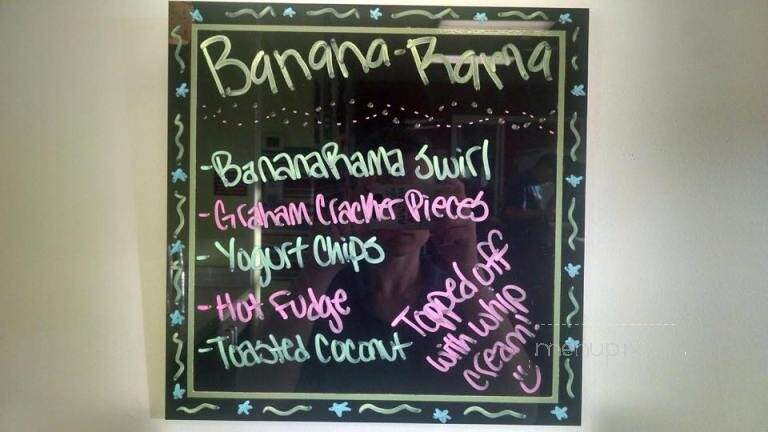 Banana-Rama
-BananaRama Swirl
-Graham Cracker Pieces
- Yogurt Chips
-Hot Fudge
-Toasted Coconut
Topped off
with whip
cream!
menupix